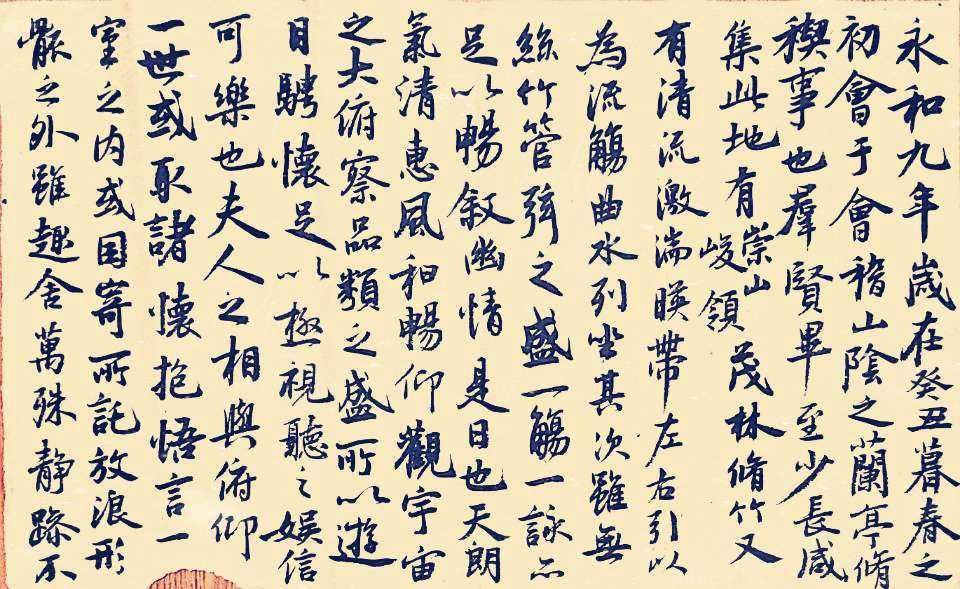 永和九年歲在癸丑暮春之
初會于會稽山陰之蘭亭脩
稧事也羣賢畢至少長咸
集此地有崇山峻領茂林脩竹又
有清流激湍暎帶左右引以
為流觴曲水列坐其次雖無
絲竹管弦之盛一觴一詠亦
足以暢敘幽情是日也天朗
氣清惠風和暢仰觀宇宙
之大俯察品類之盛所以遊
目騁懷足以極視聽之娛信
可樂也夫人之相與俯仰
一世或取諸懷抱悟言一
室之內或因寄所託放浪形
骸之外雖趣舍萬殊静躁不